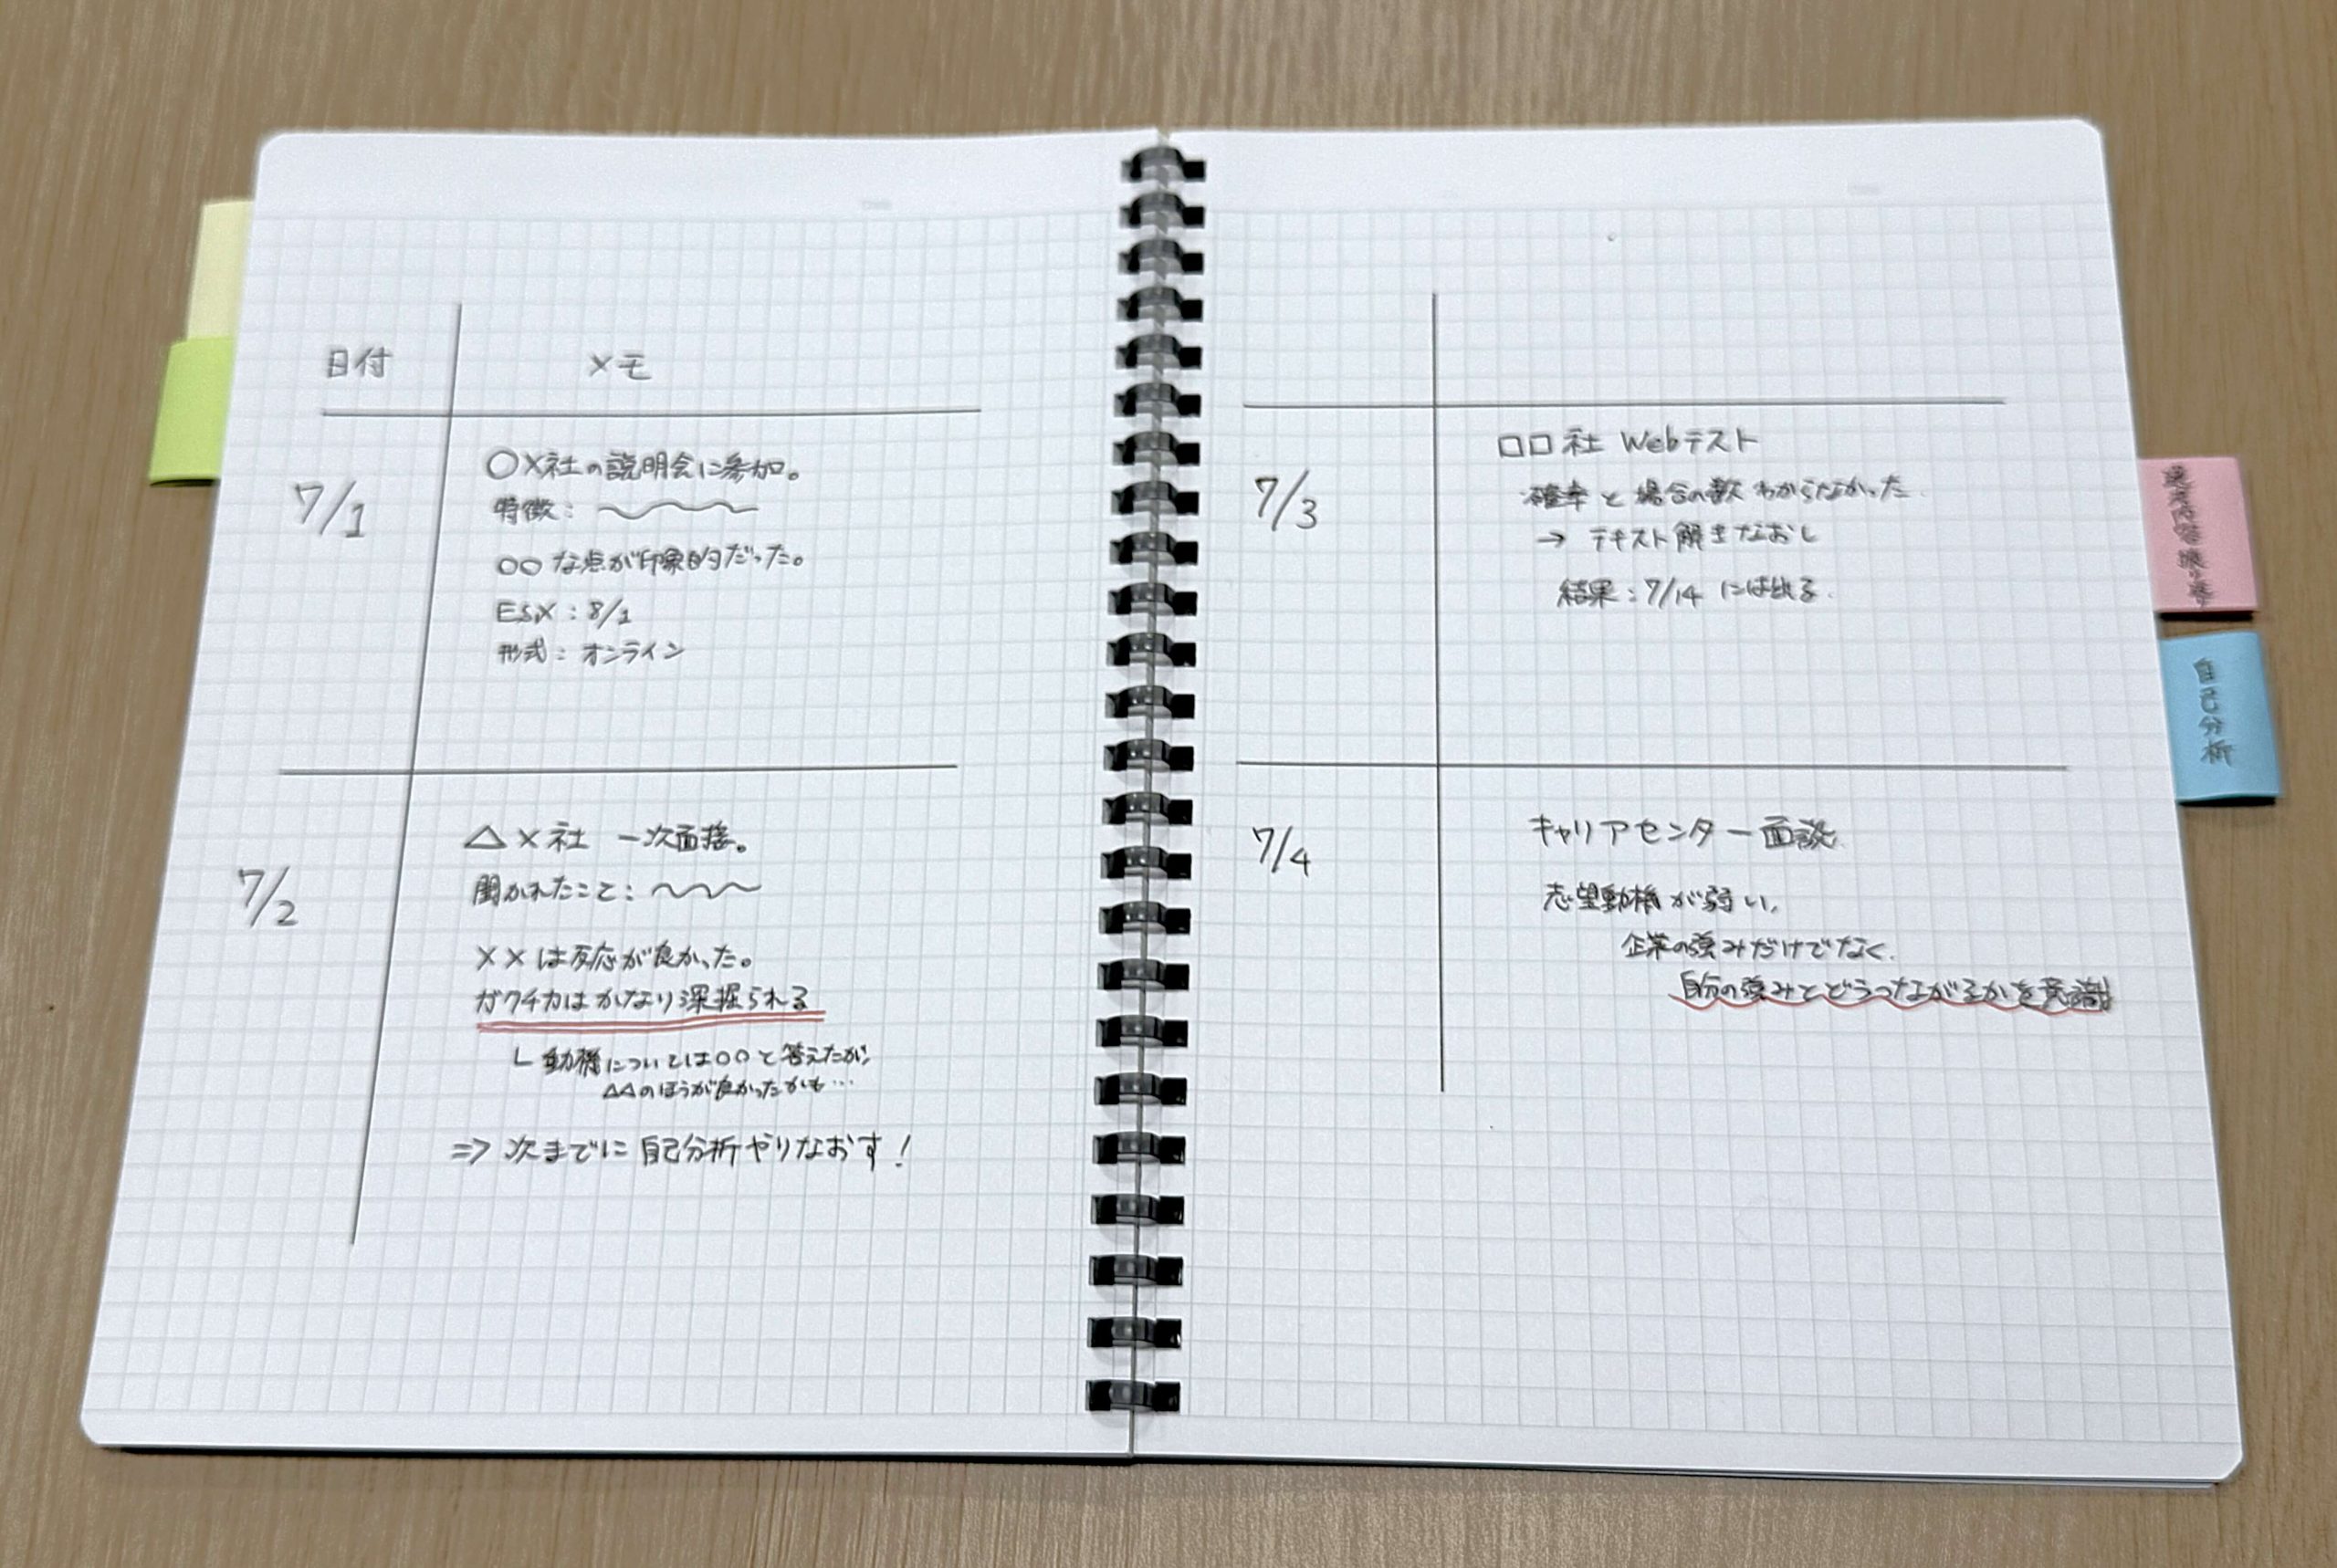 日付 メモ
7/1
○×社の説明会に参加。
特徴:
○○な点が印象的だった。
ES〆:8/1
形式:オンライン
7/2
△×社 一次面接。
聞かれたこと:
××は反応が良かった。
ガクチカはかなり深掘られる
└動機については○○と答えたが、
△△のほうが良かったかも…
⇒次までに自己分析やりなおす!
7/3
□□社 Webテスト
確率と場合の数わからなかった.
→ テキスト解きなおし
結果:7/14には出る.
7/4
キャリアセンター面談
志望動機が弱い,
企業の強みだけでなく,
自分の強みとどうつながるかを意識
選考内容振り返り
自己分析